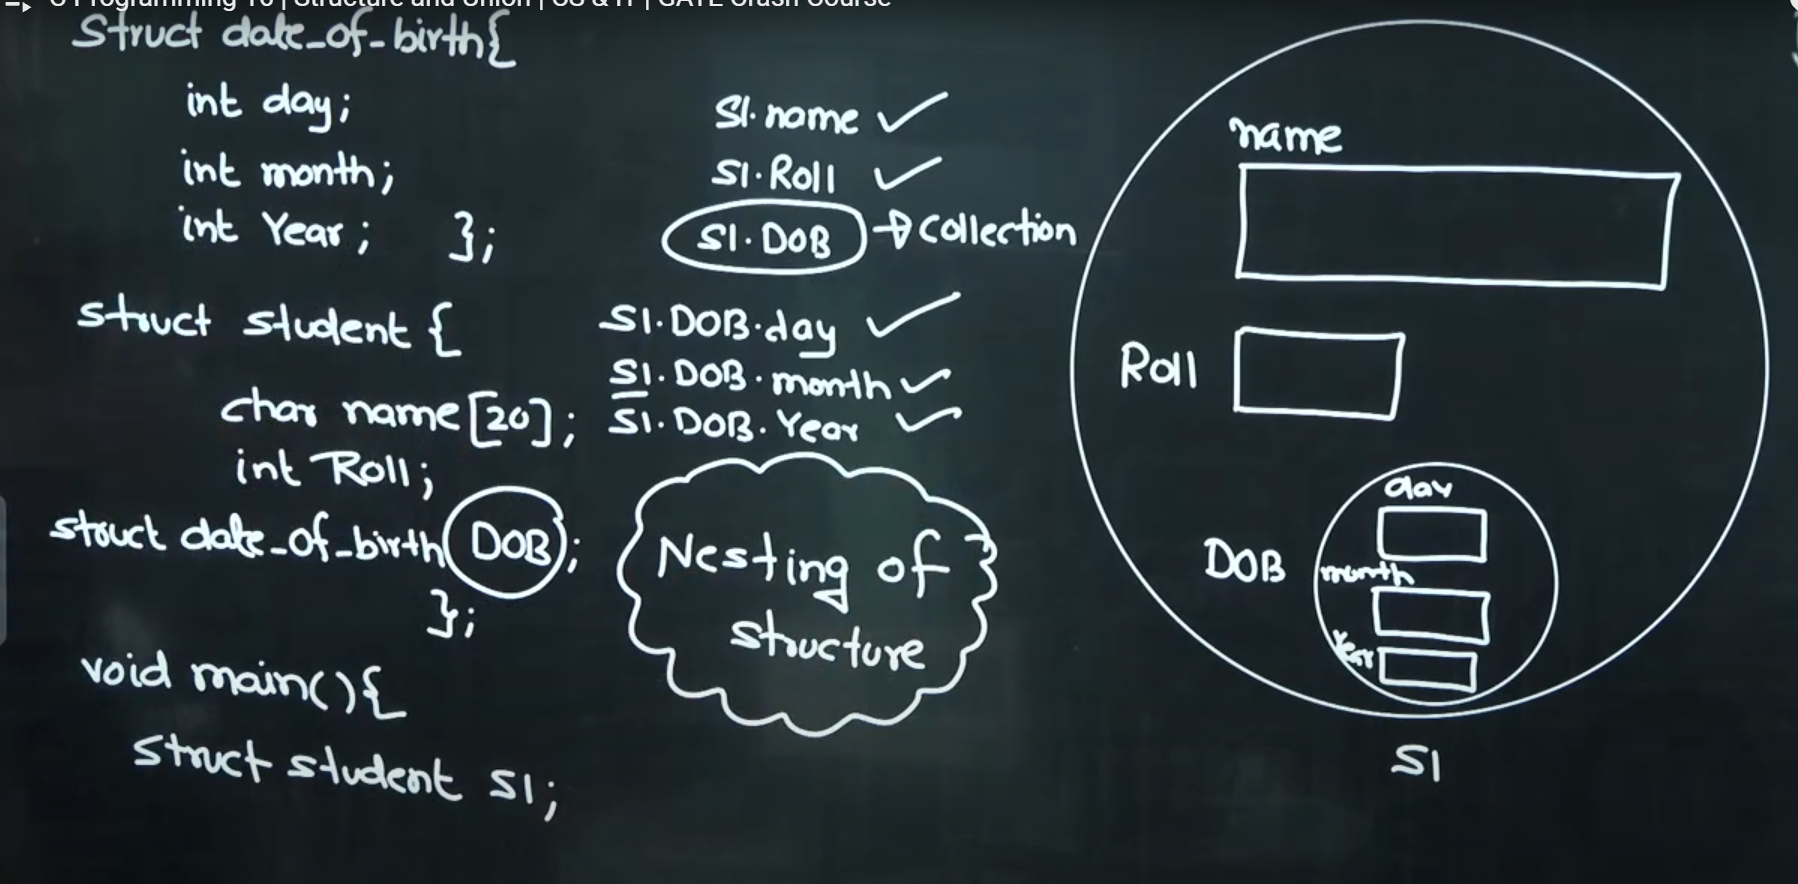 C Programming 10 | Structure and Union | CS & IT | GATE Crash Course
Struct date_of_birth{
int day;
int month;
int Year; };
struct student {
char name[20];
int Roll;
struct date_of_birth DOB;
};
void main(){
struct student S1;
S1.name ✓
S1.Roll ✓
S1.DOB → Collection
S1.DOB.day ✓
S1.DOB.month ✓
S1.DOB.Year ✓
Nesting of
structure
name
Roll
DOB
day
month
Year
S1